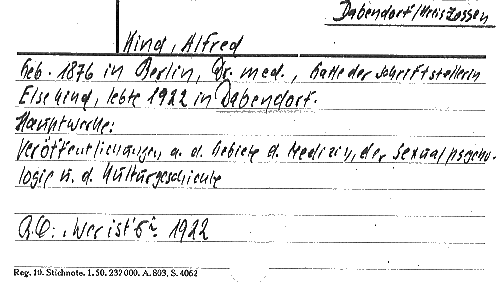 Dabendorf/Kreis Zossen
Kind, Alfred
Geb. 1876 in Berlin, Dr. med., Gatte der Schriftstellerin
Else Kind, lebte 1922 in Dabendorf.
Hauptwerke:
Veröffentlichungen a. d. Gebiete d. Medizin, der Sexualpsycho-
logie u. d. Kulturgeschichte
Qu: „Wer ist's“ 1922
Reg. 10. Stichnote. 1. 50. 232 000. A. 803, S. 4062